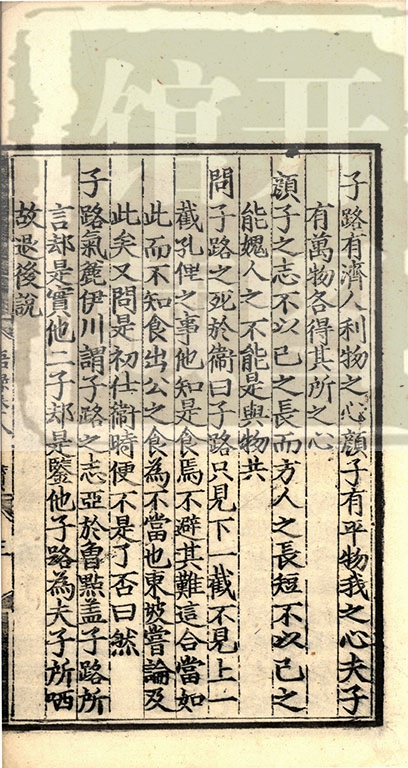 子路有濟人利物之心顔子有平物我之心夫子
有萬物各得其所之心
顔子之志不以己之長而方人之長短不以己之
能媿人之不能是與物共
問子路之死於衞曰子路只見下一截不見上一
截孔悝之事他知是食焉不避其難這合當如
此而不知食出公之食為不當也東坡嘗論及
此矣又問是初仕衞時便不是了否曰然
子路氣麄伊川謂子路之志亞於魯點盖子路所
言却是實他二子却是鑒他子路為夫子所哂
故退後說